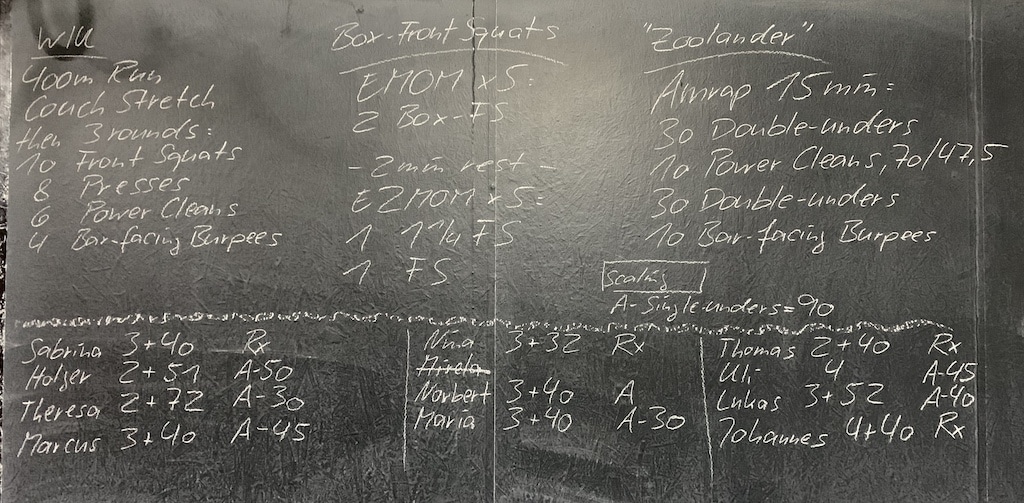 WU
400m Run
Couch Stretch
then 3 rounds:
10 Front Squats
8 Presses
6 Power Cleans
4 Bar-facing Burpees
Box-Front Squats
EMOM x5:
2 Box-FS
- 2 min rest -
E2MOM x5:
1 1 1/4 FS
1 FS
"Zoolander"
Amrap 15 min:
30 Double-unders
10 Power Cleans, 70/47,5
30 Double-unders
10 Bar-facing Burpees
Scaling
A- Single-unders = 90
Sabrina 3+40 Rx
Holger 2+51 A-50
Theresa 2+72 A-30
Marcus 3+40 A-45
Nina 3+32 Rx
Norbert 3+40 A
Maria 3+40 A-30
Thomas 2+40 Rx
Uli 4 A-45
Lukas 3+52 A-40
Johannes 4+40 Rx